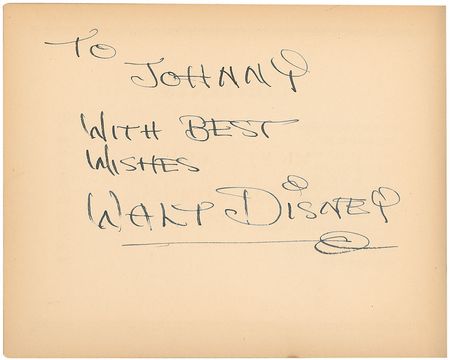 TO
JOHNNY
WITH BEST
WISHES
WALT DISNEY